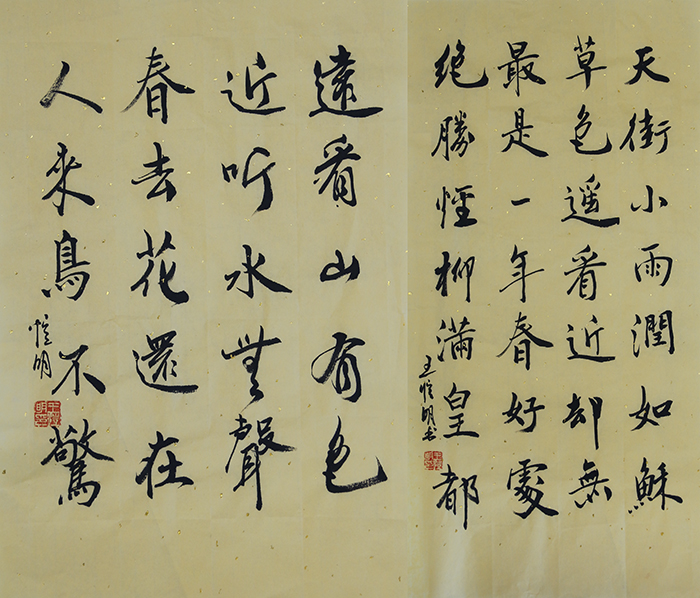 天街小雨潤如穌
草色遥看近却無
最是一年春好處
绝勝煙柳滿皇都
遠看山有色
近听水無聲
春去花還在
人來鳥不驚